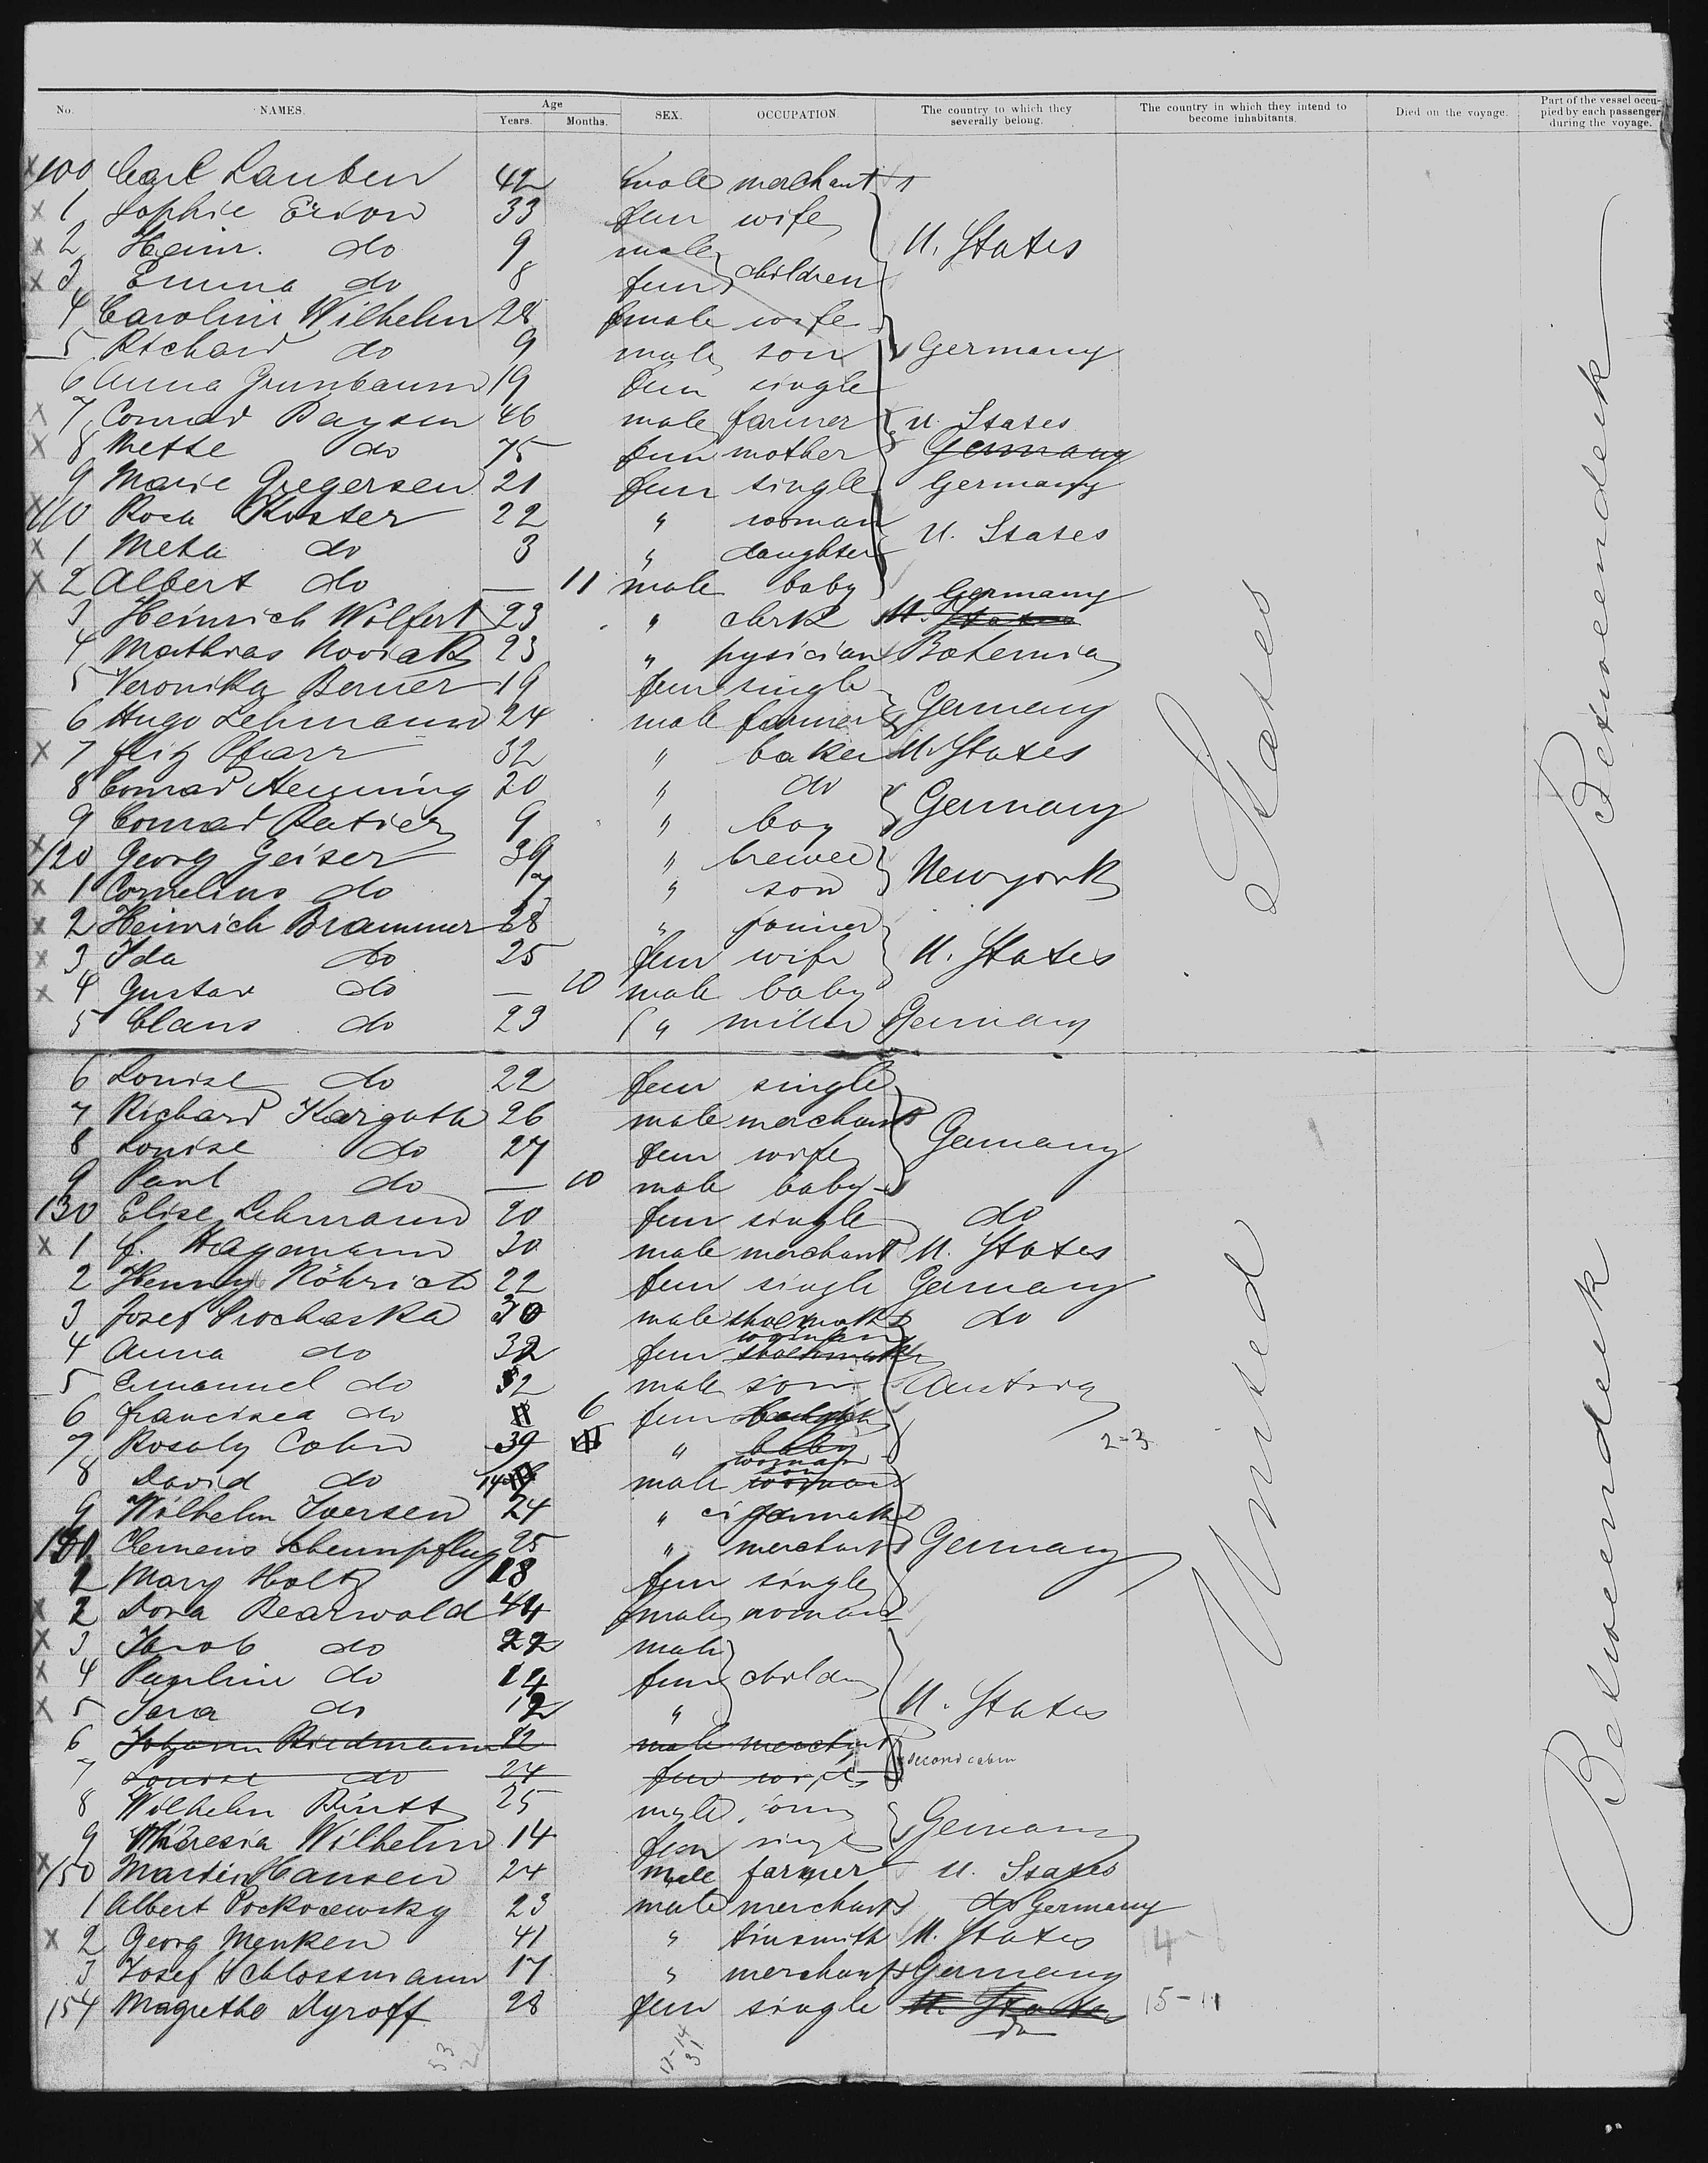 No. NAMES. Age Years. Months. SEX. OCCUPATION. The country to which they severally belong. The country in which they intend to become inhabitants. Died on the voyage. Part of the vessel occupied by each passenger during the voyage.
x 100 Carl Lauben 42 male merchant
x 1 Sophie Erion 33 fem wife
x 2 Heinr. do 9 male children U. States
x 3 Emma do 8 fem
4 Caroline Wilhelm 28 female wife
5 Richard do 9 male son Germany
6 Anna Grunbaum 19 fem single
x 7 Conrad Paysen 46 male farmer U. States
x 8 Mette do 75 fem mother Germany
9 Marie Gregersen 21 fem single Germany
x 110 Rosa Koster 22 " woman U. States
x 1 Meta do 3 " daughter
x 2 Albert do — 11 male baby
3 Heinrich Wölfert 23 " clerk Germany U. States
4 Mathias Noviak 23 " pysician Bohemia
5 Veronika Berner 19 fem single Germany
6 Hugo Lehmann 24 male farmer
x 7 Fritz Pfarr 32 " baker U. States
8 Conrad Henning 20 " do Germany
9 Conrad Ratier 9 " boy
x 120 Georg Geiser 39 " brewer Newyork
x 1 Cornelius do 7 " son
x 2 Heinrich Brammer 28 " joiner
x 3 Ida do 25 fem wife U. States
x 4 Gustav do — 10 male baby
5 Claus do 23 " miller Germany
6 Louise do 22 fem single
7 Richard Karguth 26 male merchant Germany
8 Louise do 27 fem wife
9 Paul do — 10 male baby
130 Elise Lehmann 20 fem single do
x 1 F. Hagemann 30 male merchant U. States
2 Henny Röhrich 22 fem single Germany
3 Josef Prochaska 30 male shoemaker do
4 Anna do 32 fem woman
5 Emanuel do 2 male son Austria
6 Francisca do 6 fem
7 Rosaly Cohn 39 " baby woman 2-3
8 David do 14 male son woman
9 Wilhelm Iversen 24 " cigarmaker
140 Clemens Scheunpflug 25 " merchant Germany
1 Mary Holtz 18 fem single
x 2 Dora Bearwald 44 female woman
x 3 Jacob do 22 male children
x 4 Pauline do 14 fem
x 5 Sara do 12 " U. States
6 Johann Riedmann 32 male merchant second cabin
7 Louise do 24 fem wife
8 Wilhelm Bintt 25 male Germany
9 Theresia Wilhelm 14 fem single
x 150 Martin Hansen 24 male farmer U. States
1 Albert Pockocewsky 23 male merchant do Germany
x 2 Georg Menken 41 " tinsmith U. States 14
3 Josef Schlossmann 17 " merchant Germany
154 Magrethe Dyroff 28 fem single U. States do 15-11
United States
Betweendeck
Betweendeck
53 22
17-14
31